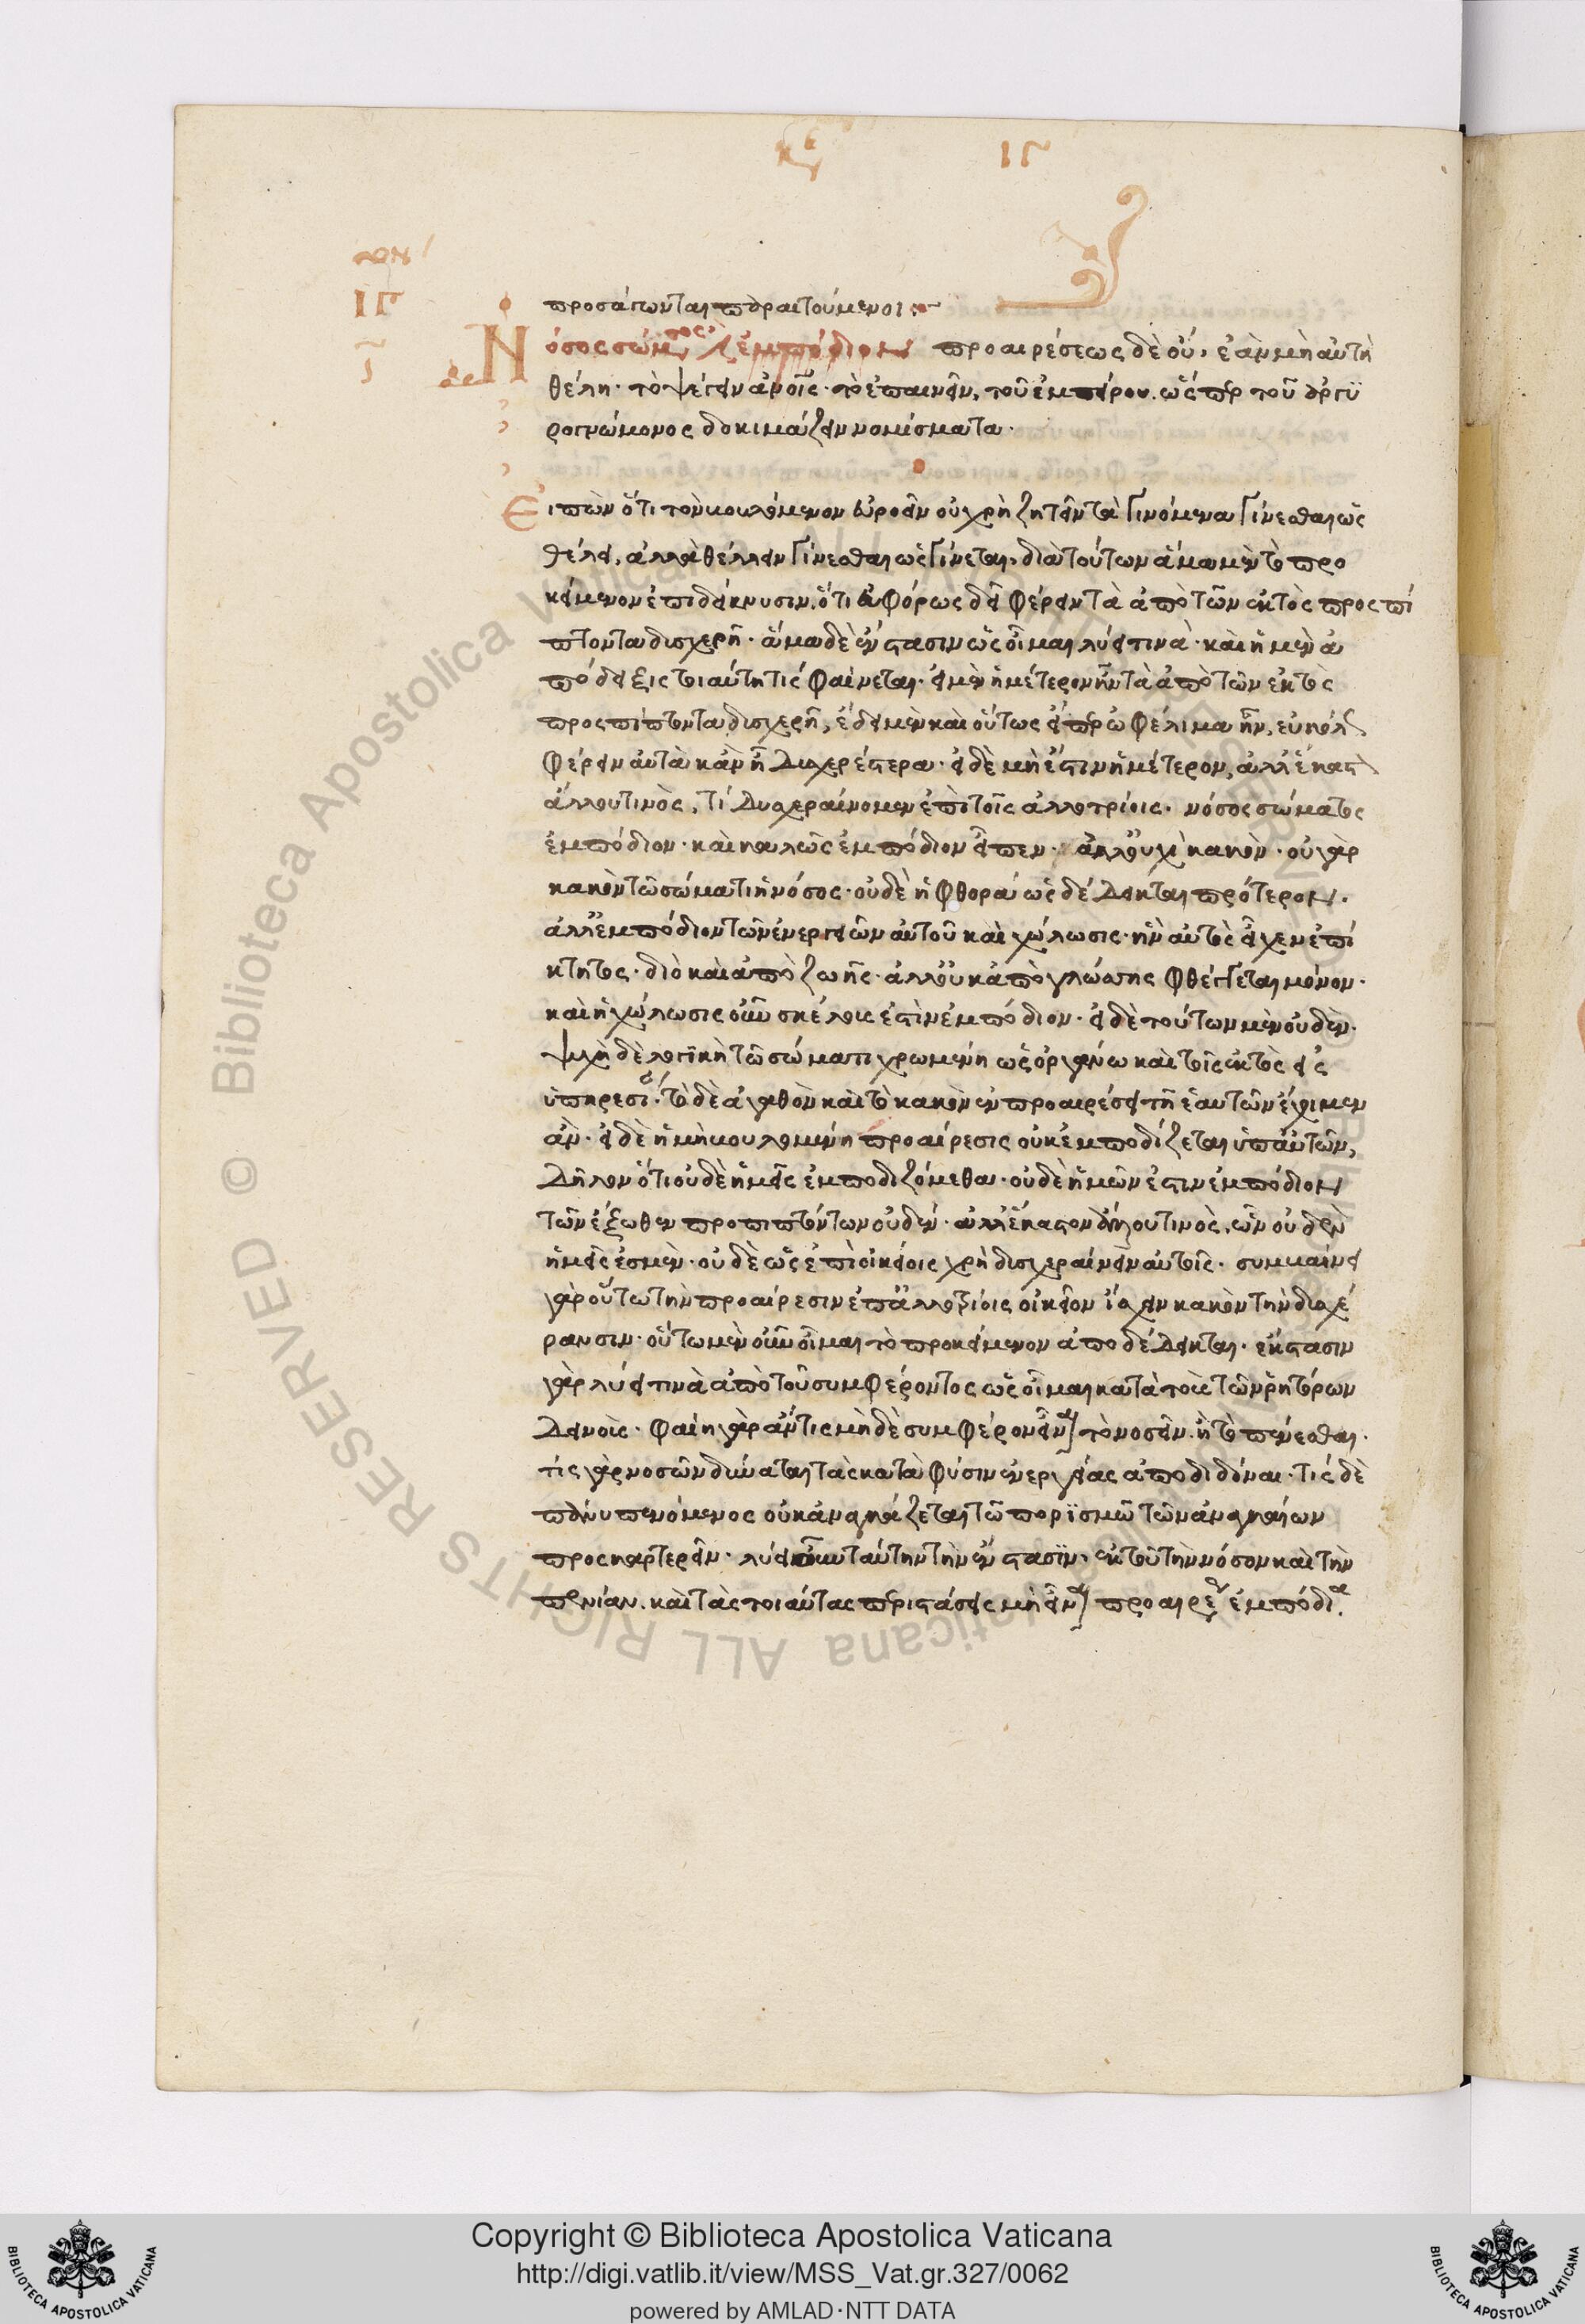 ΙΓ
ΙΓ
προσάπωνται παραιτούμενοι:~
Νόσος σώματος ἐμπόδιον προαιρέσεως δὲ οὔ, ἐὰν μὴ αὐτὴ
θέλη· τὸ ψέγειν ἀνοίας· τὸ ἐπαινεῖν, τοῦ ἐμπείρου. ὥσπερ τοῦ ἀργυ
ρογνώμονος δοκιμάζειν νομίσματα·
Εἰπὼν ὅτι τὸν βουλόμενον εὐροεῖν οὐ χρὴ ζητεῖν τὰ γινόμενα γίνεσθαι ὡς
θέλει, ἀλλὰ θέλειν γίνεσθαι ὡς γίνεται, διὰ τούτων ἅμα μὲν τὸ προ
κείμενον ἐπιδείκνυσιν, ὅτι εὐφόρως δεῖ φέρειν τὰ ἀπὸ τῶν ἐκτὸς προσπί
πτοντα δυσχερῆ· ἅμα δὲ ἔνστασιν ὡς οἶμαι λύει τινὰ· καὶ ἡ μὲν ἀ
πόδειξις τοιαύτη τίς φαίνεται· εἰ μὲν ἡμέτερον ἦν τὰ ἀπὸ τῶν ἐκτὸς
προσπίπτοντα δυσχερῆ, ἔδει μὲν καὶ οὕτως εἴπερ ὠφέλιμα ἦν, εὐκόλως
φέρειν αὐτὰ κἂν ἦ δυσχερέστερα· εἰ δὲ μὴ ἔστιν ἡμέτερον, ἀλλ' ἕκαστον
ἄλλου τινὸς, τί δυσχεραίνομεν ἐπὶ τοῖς ἀλλοτρίοις· νόσος σώματος
ἐμπόδιον· καὶ καλῶς ἐμπόδιον εἶπεν· ἀλλ' οὐχὶ κακὸν· οὐ γὰρ
κακὸν τῶ σώματι ἡ νόσος· οὐδὲ ἡ φθορά ὡς δέδεικται πρότερον·
ἀλλ' ἐμπόδιον τῶν ἐνεργειῶν αὐτοῦ καὶ χώλωσις· ἣν αὐτὸς εἶχεν ἐπί
κτητος· διὸ καὶ ἀπὸ ζωῆς· ἀλλ' οὐκ ἀπὸ γλώσσης φθέγγεται μόνον·
καὶ ἡ χώλωσις οὖν σκέλους ἐστὶν ἐμπόδιον· εἰ δὲ τούτων μὲν οὐδὲν·
ψυχὴ δὲ λογϊκὴ τῶ σώματι χρωμένη ὡς ὀργάνω καὶ τοῖς ἐκτὸς εἰς
ὑπηρεσίαν· τὸ δὲ ἀγαθὸν καὶ τὸ κακὸν ἐν προαιρέσει τῆ ἑαυτῶν ἔχομεν
ἂν· εἰ δὲ ἡ μὴ βουλομένη προαίρεσις οὐκ ἐμποδίζεται ὑπ' αὐτῶν,
δῆλον ὅτι οὐδὲ ἡμεῖς ἐμποδιζόμεθα· οὐδὲ ἡμῶν ἐστιν ἐμπόδιον
τῶν ἔξωθεν προπιπτόντων οὐδέν· ἀλλ' ἕκαστον ἄλλου τινὸς, ὧν οὐδὲν
ἡμεῖς ἐσμὲν· οὐδὲ ὡς ἐπὶ οἰκείοις χρὴ δυσχεραίνειν αὐτοῖς· συμβαίνει
γὰρ οὕτω τὴν προαίρεσιν ἐπ' ἀλλοτρίοις οἰκεῖον ἴσχειν κακὸν τὴν δυσχέ
ρανσιν· οὕτω μὲν οὖν οἶμαι τὸ προκείμενον ἀποδέδεικται· ἔνστασιν
γὰρ λύει τινὰ ἀπὸ τοῦ συμφέροντος ὡς οἶμαι κατὰ τοὺς τῶν ῥητόρων
δεινοὺς· φαίη γὰρ ἄν τις μὴ δὲ συμφέρον εἶναι τὸ νοσεῖν. ἢ τὸ πένεσθαι·
τίς γὰρ νοσῶν δύναται τὰς κατὰ φύσιν ἐνεργείας ἀποδιδόναι· τίς δὲ
πάνυ πενόμενος οὐκ ἀναγκάζεται τῶ πορϊσμῶ τῶν ἀναγκαίων
προσκαρτερεῖν· λύει οὖν ταύτην τὴν ἔνστασϊν, ἐκ τοῦ τὴν νόσον καὶ τὴν
πενίαν. καὶ τὰς τοιαύτας περιστάσεις μὴ εἶναι προαιρέσεως ἐμπόδια.
Copyright © Biblioteca Apostolica Vaticana
http://digi.vatlib.it/view/MSS_Vat.gr.327/0062
powered by AMLAD·NTT DATA